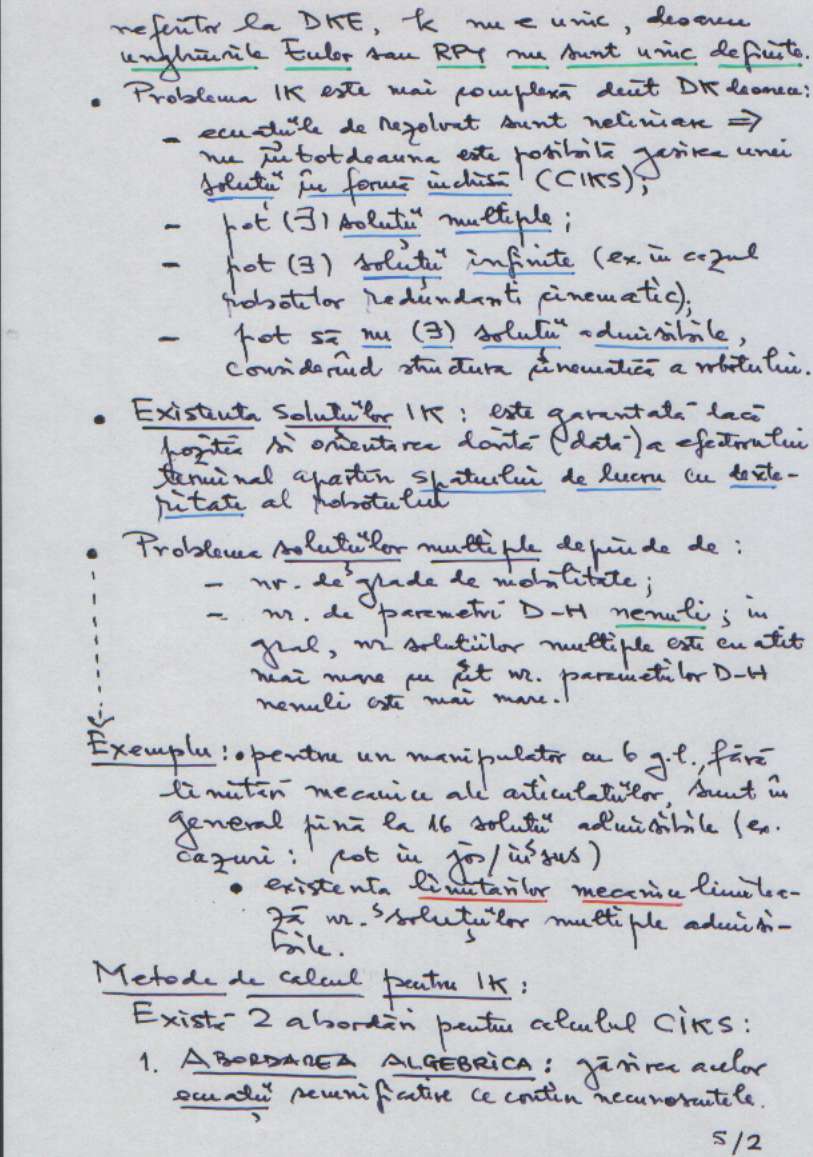 referitor la DKE, k nu e unic, deoarece
unghiurile Euler sau RPY nu sunt unic definite.
• Problema IK este mai complexă decît DK deoarece:
- ecuațiile de rezolvat sunt neliniare ⇒
nu întotdeauna este posibilă găsirea unei
soluții în formă închisă (CIKS);
- pot (∃) soluții multiple;
- pot (∃) soluții infinite (ex. în cazul
roboților redundanți cinematic);
- pot să nu (∃) soluții admisibile,
considerînd structura cinematică a robotului.
• Existența soluțiilor IK : este garantată dacă
poziția și orientarea dorită (dată) a efectorului
terminal aparțin spațiului de lucru cu dexte-
ritate al robotului
• Problema soluțiilor multiple depinde de :
- nr. de grade de mobilitate;
- nr. de parametri D-H nenuli; in
gral, nr soluțiilor multiple este cu atît
mai mare cu cît nr. parametrilor D-H
nenuli este mai mare.
Exemplu : • pentru un manipulator cu 6 g.l., fără
limitări mecanice ale articulațiilor, sunt în
general pînă la 16 soluții admisibile (ex.
cazuri : cot în jos/în sus)
• existența limitărilor mecanice limitea-
ză nr. soluțiilor multiple admisi-
bile.
Metode de calcul pentru IK :
Există 2 abordări pentru calculul CIKS :
1. ABORDAREA ALGEBRICA : găsirea acelor
ecuații semnificative ce conțin necunoscutele.
5/2